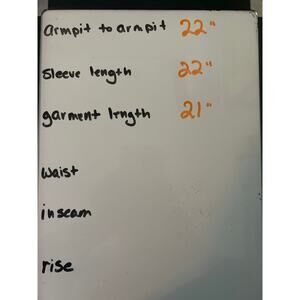 armpit to armpit 22"
sleeve length 22"
garment length 21"
waist
inseam
rise